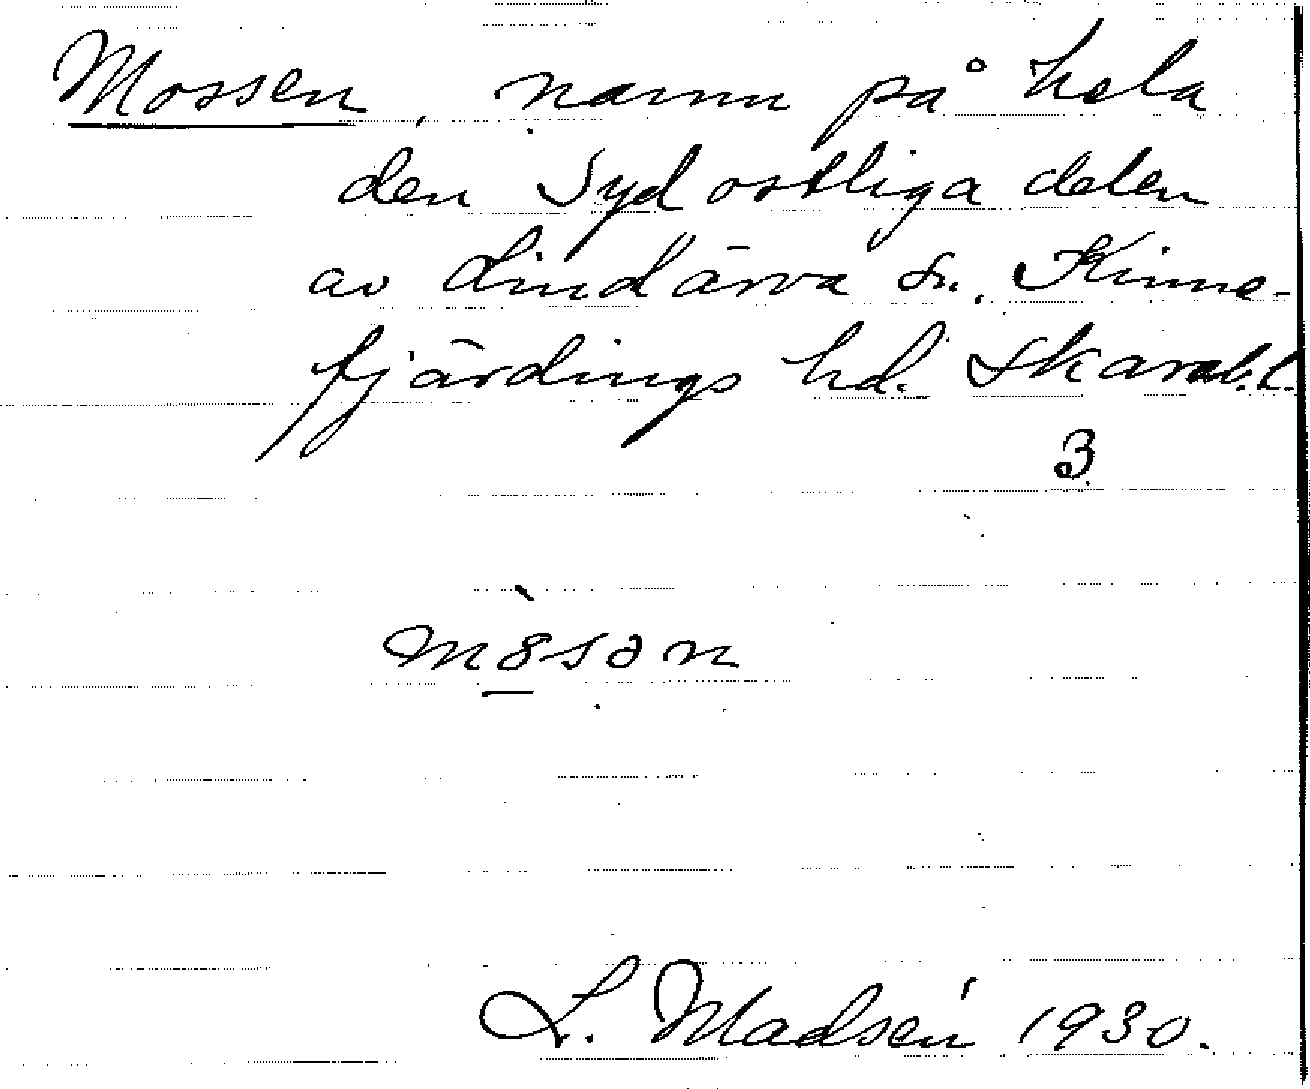 Mossen, namn på hela
den Sydostliga delen
av Lindärva sn. Kinne-
fjärdings hd. Skarab.l.
3
L. Madsén 1930.